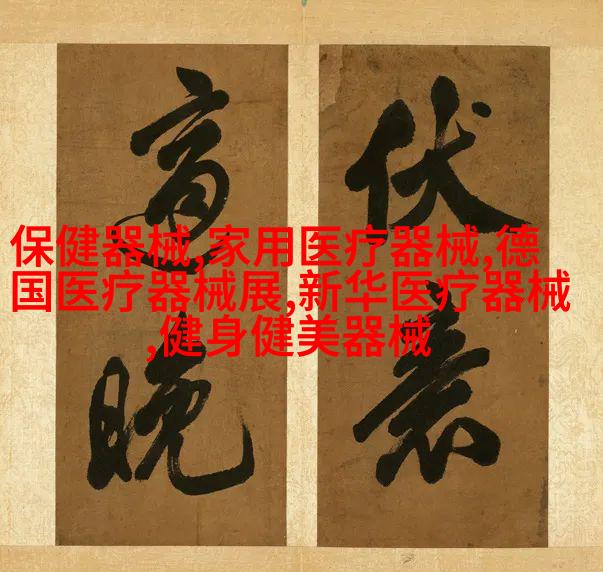 保健器械,家用医疗器械,德
国医疗器械展,新华医疗器械
,健身健美器械
伏
適晚